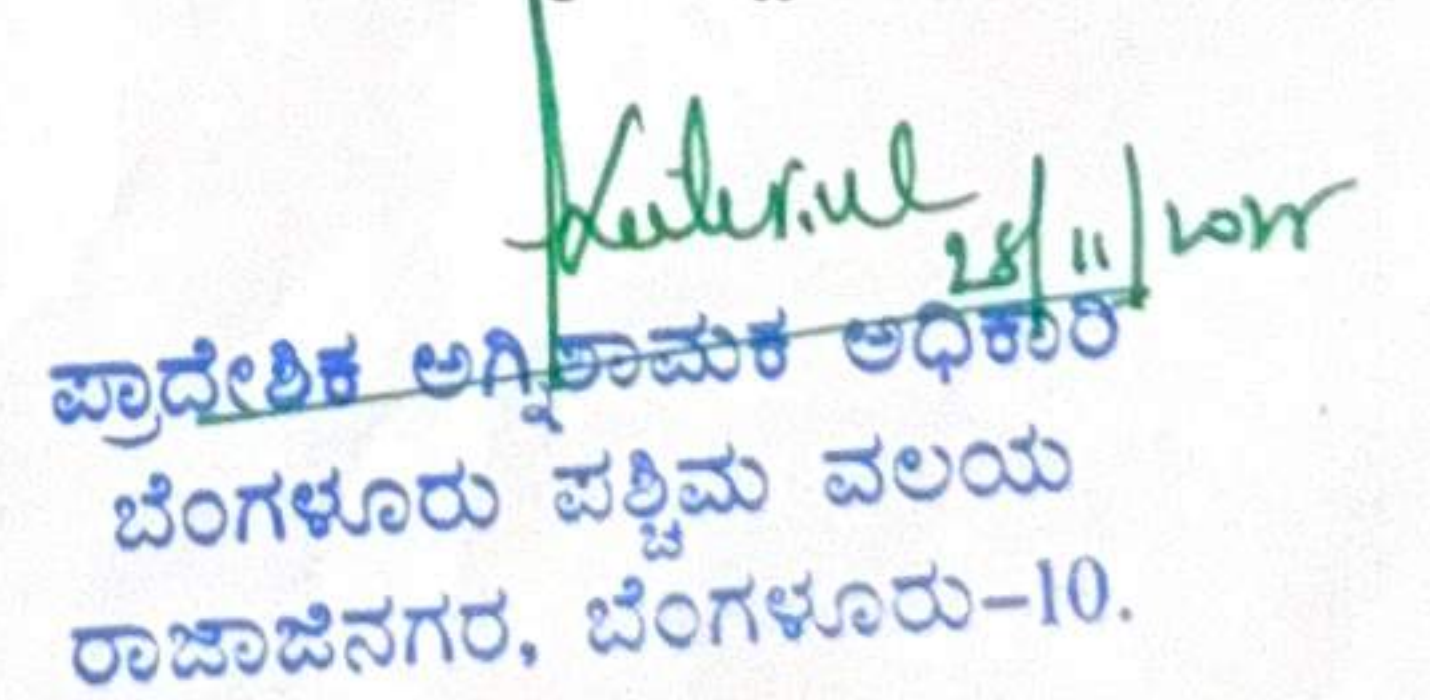 28/11/2022
ಪ್ರಾದೇಶಿಕ ಅಗ್ನಿಶಾಮಕ ಅಧಿಕಾರಿ
ಬೆಂಗಳೂರು ಪಶ್ಚಿಮ ವಲಯ
ರಾಜಾಜಿನಗರ, ಬೆಂಗಳೂರು-10.